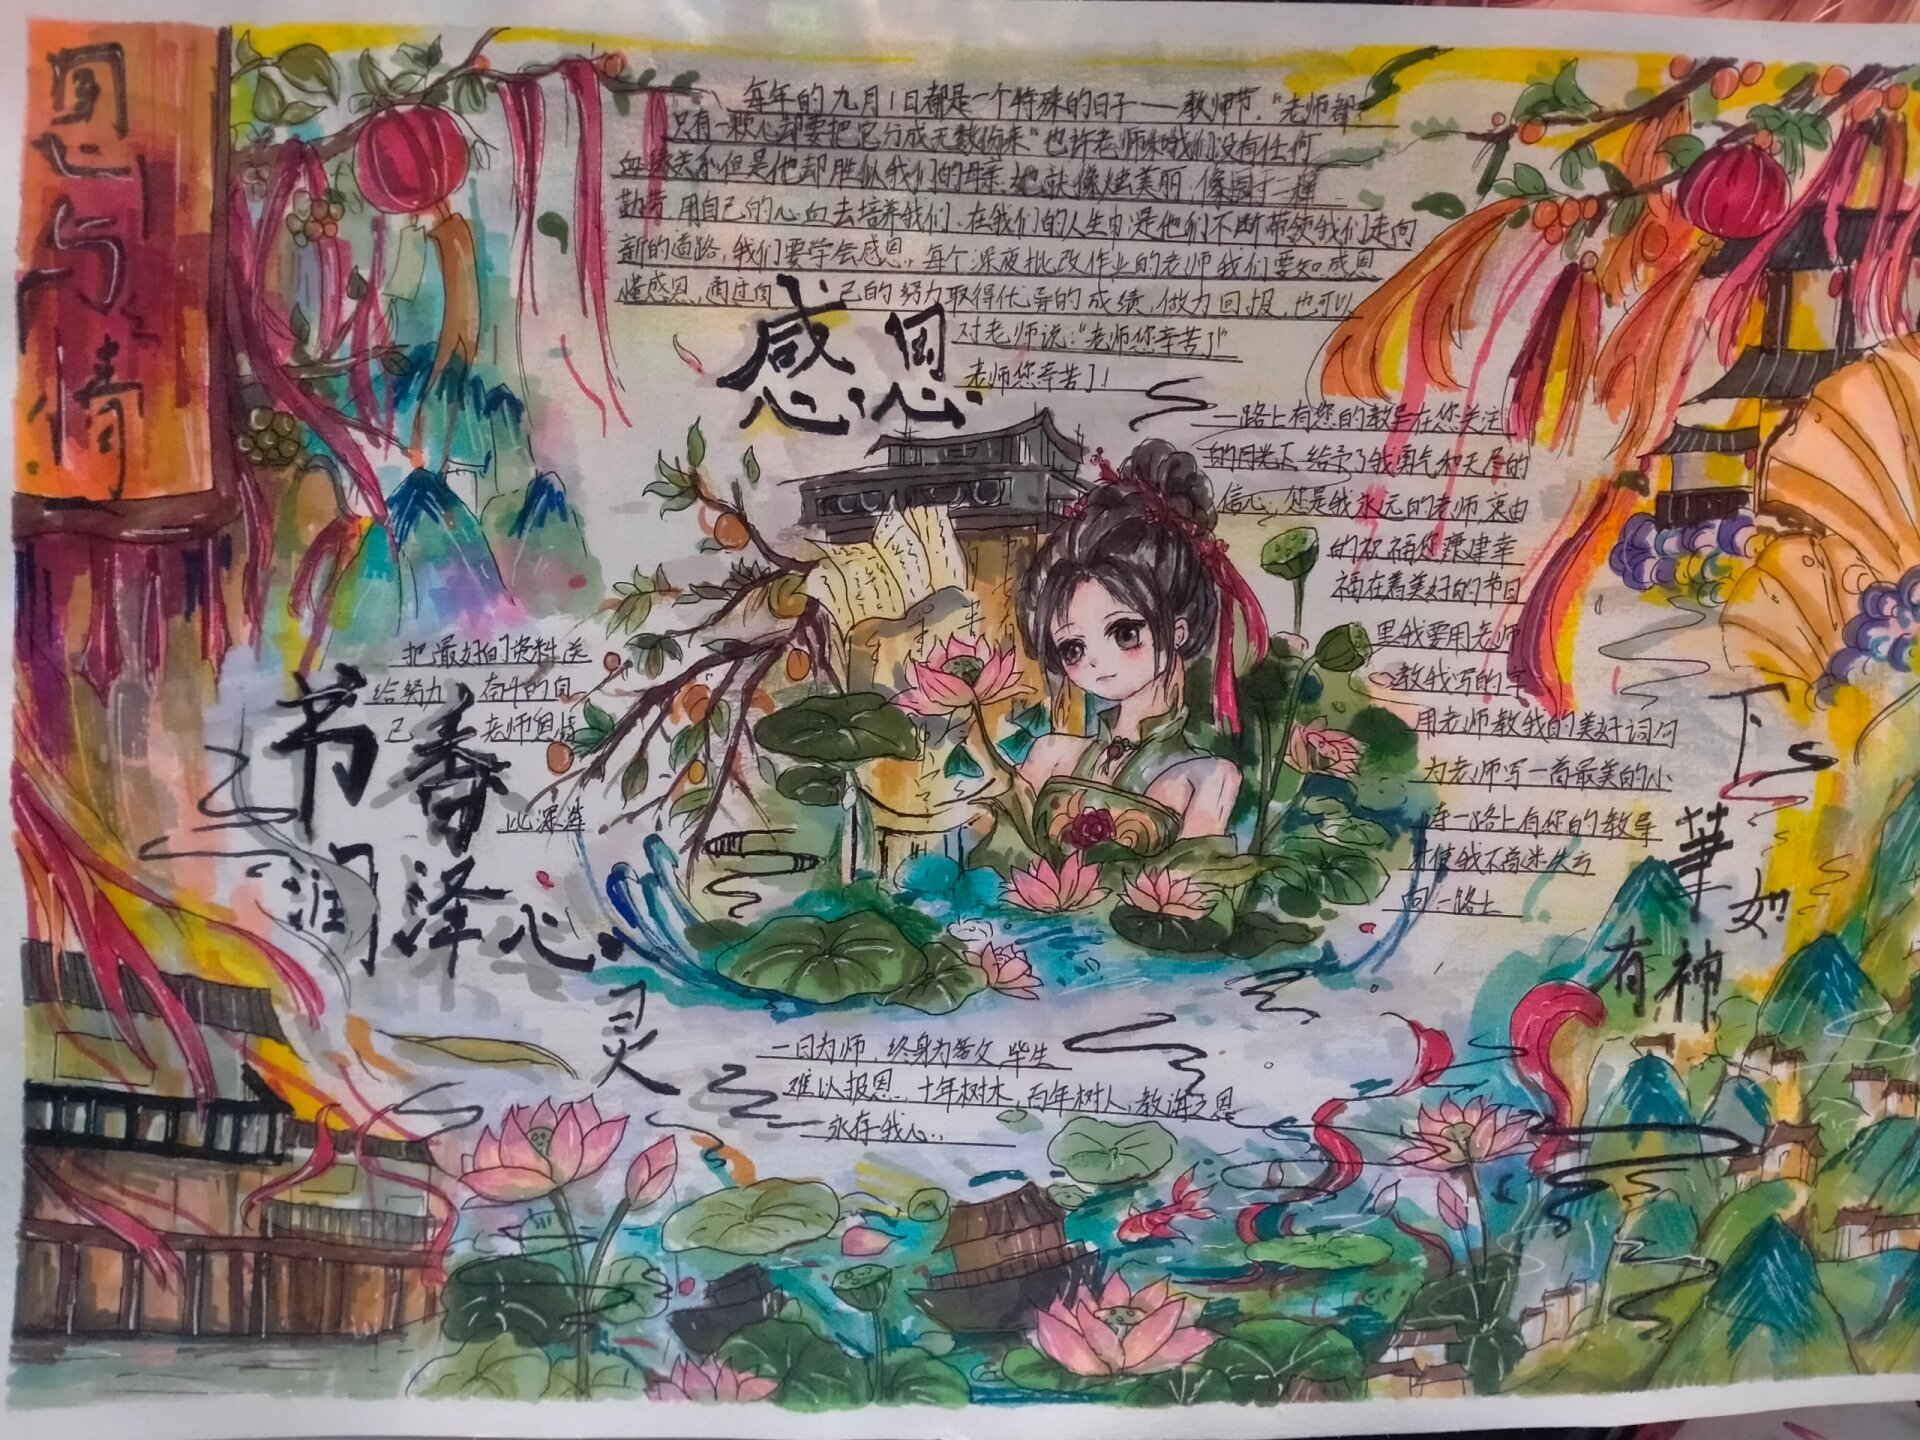 恩与情
每年的九月1日都是一个特殊的日子——教师节."老师都
只有一颗心却要把它分成无数份来"也许老师和我们没有任何
血缘关系但是他却胜似我们的母亲.她就像 美丽,像园丁一样
勤劳,用自己的心血去培养我们.在我们的人生中是他们不断带领我们走向
新的道路,我们要学会感恩,每个深夜批改作业的老师我们要知感恩
懂感恩,通过自己的努力取得优异的成绩,做为回报,也可以
对老师说:"老师您辛苦了!"
老师您辛苦了!
感恩
一路上有您的教导在您关注
的目光下给予了我勇气和无尽的
信心,您是我永远的老师,衷由
的祝福您康健幸
福在着美好的节日
里我要用老师
教我写的字
用老师教我的美好词句
为老师写一首最美的小
诗一路上有您的教导
才使我不会迷失方
向一路上
把最好的资料送
给努力奋斗的自
己 老师恩情
比深海
书香
润泽心
灵
下
筆
如
有神
一日为师,终身为 父,毕生
难以报恩,十年树木,百年树人,教诲之恩
永存我心.